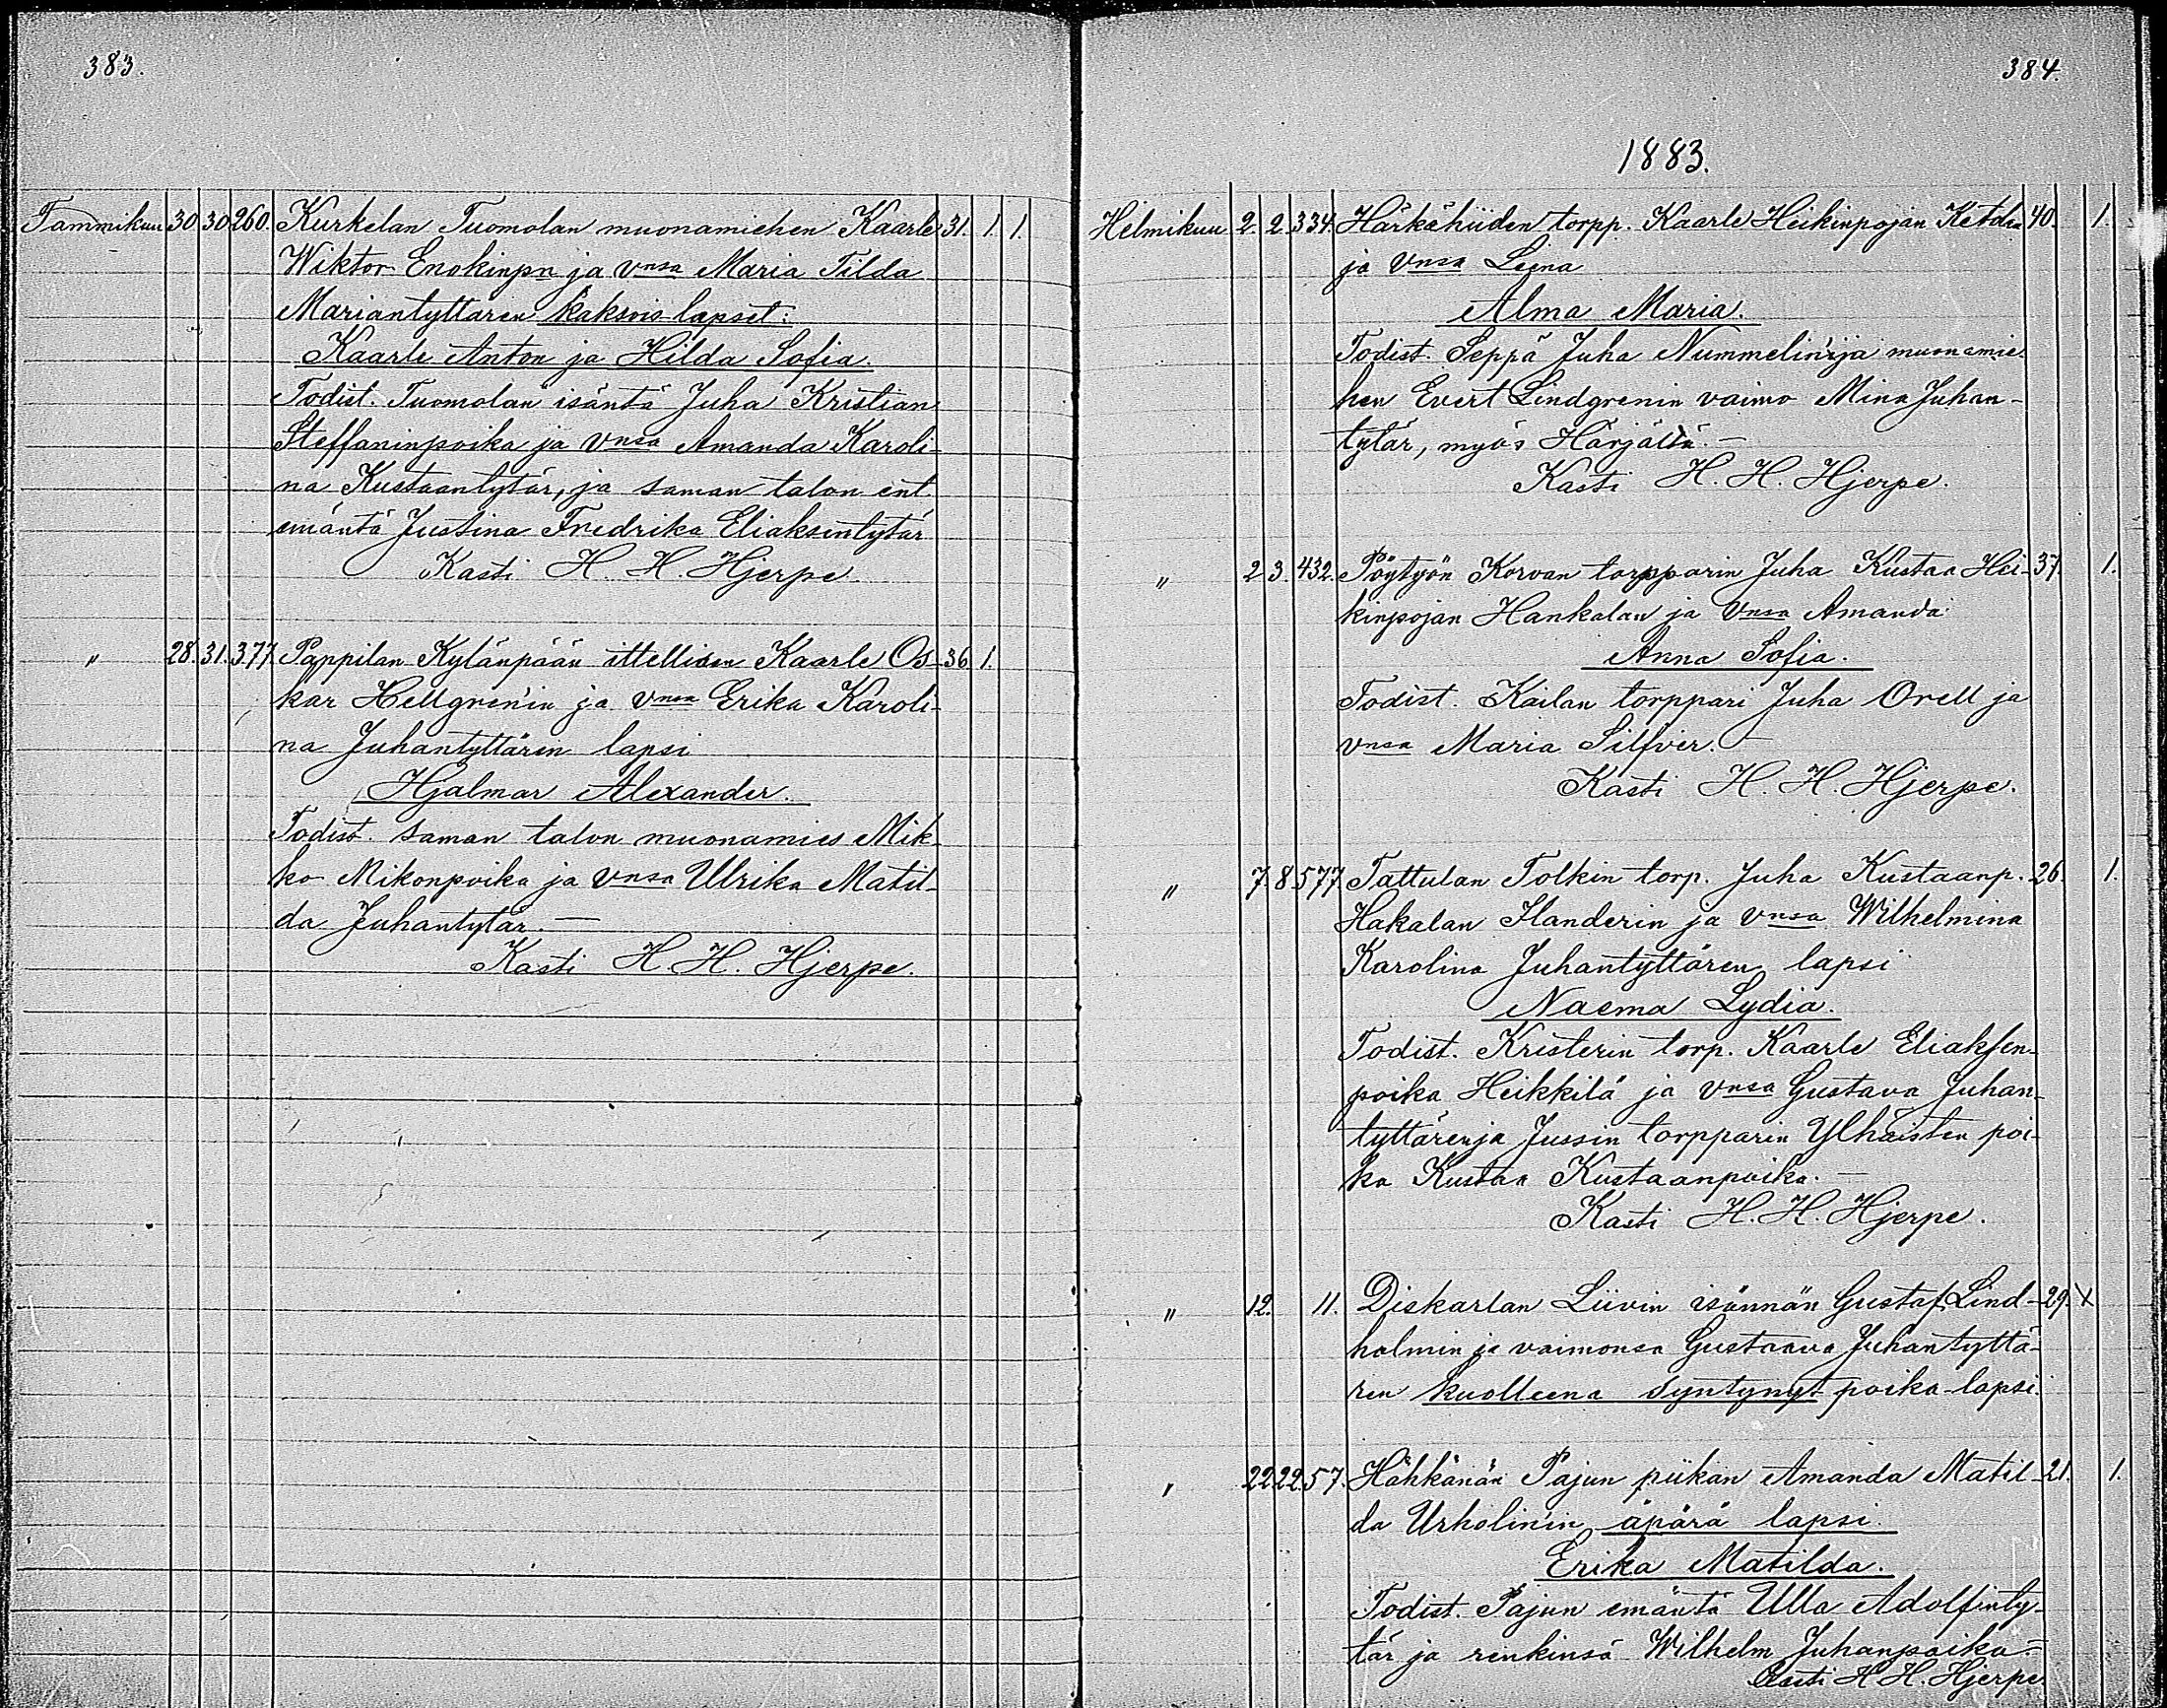 383.
Tammikuu 30. 30. 260. Kurkelan Tuomolan muonamiehen Kaarle 31. 1. 1.
Wiktor Enokinpn ja vnsa Maria Tilda
Mariantyttären kaksois-lapset:
Kaarle Anton ja Hilda Sofia.
Todist. Tuomolan isäntä Juha Kristian
Steffaninpoika ja vnsa Amanda Karoli-
na Kustaantytär, ja saman talon ent.
emäntä Justina Fredrika Eliaksentytär
Kasti H. H. Hjerpe
" 28. 31. 377. Pappilan Kylänpään ittellisen Kaarle Os- 36. 1.
kar Hellgrenin ja vnsa Erika Karoli-
na Juhantyttärin lapsi
Hjalmar Alexander.
Todist. saman talon muonamies Mik-
ko Mikonpoika ja vnsa Ulrika Matil-
da Juhantytär. —
Kasti H. H. Hjerpe.
384.
1883.
Helmikuu 2. 2. 334. Härkähiiden torpp. Kaarle Heikinpojan 40. 1.
ja vnsa Leena
Alma Maria.
Todist. Seppä Juha Nummelin'ija muonamie-
hen Evert Lindgrenin vaimo Mina Juhan-
tytär, myös —
Kasti H. H. Hjerpe.
" 2. 3. 432. Pöytyön Korvan torpparin Juha Kustaa Hei- 37. 1.
kinpojan Hankalan ja vnsa Amanda
Anna Sofia.
Todist. Kailan torppari Juha Orell ja
vnsa Maria Silfver. —
Kasti H. H. Hjerpe.
" 7. 8. 577. Tattulan Tolkin torp. Juha Kustaanp. 26. 1.
Hakalan Ilanderin ja vnsa Wilhelmina
Karolina Juhantyttären lapsi
Naema Lydia.
Todist. Kristerin torp. Kaarle Eliaksen-
poika Heikkilä ja vnsa Gustava Juhan-
tyttären ja Jussin torpparin Ylhäisten poi-
ka Kustaa Kustaanpoika. —
Kasti H. H. Hjerpe.
" 12. 11. Diskarlan Liivin isännän Gustaf Lind- 29. x
holmin ja vaimonsa Gustaava Juhantyttä-
ren kuolleena syntynyt poika-lapsi.
" 22. 22. 57. Hähkänän Pajun piikan Amanda Matil- 21. 1.
da Urholinin äpärä lapsi.
Erika Matilda.
Todist. Pajun emäntä Ulla Adolfinty-
tär ja renkinsä Wilhelm Juhanpoika. —
Kasti H. H. Hjerpe.